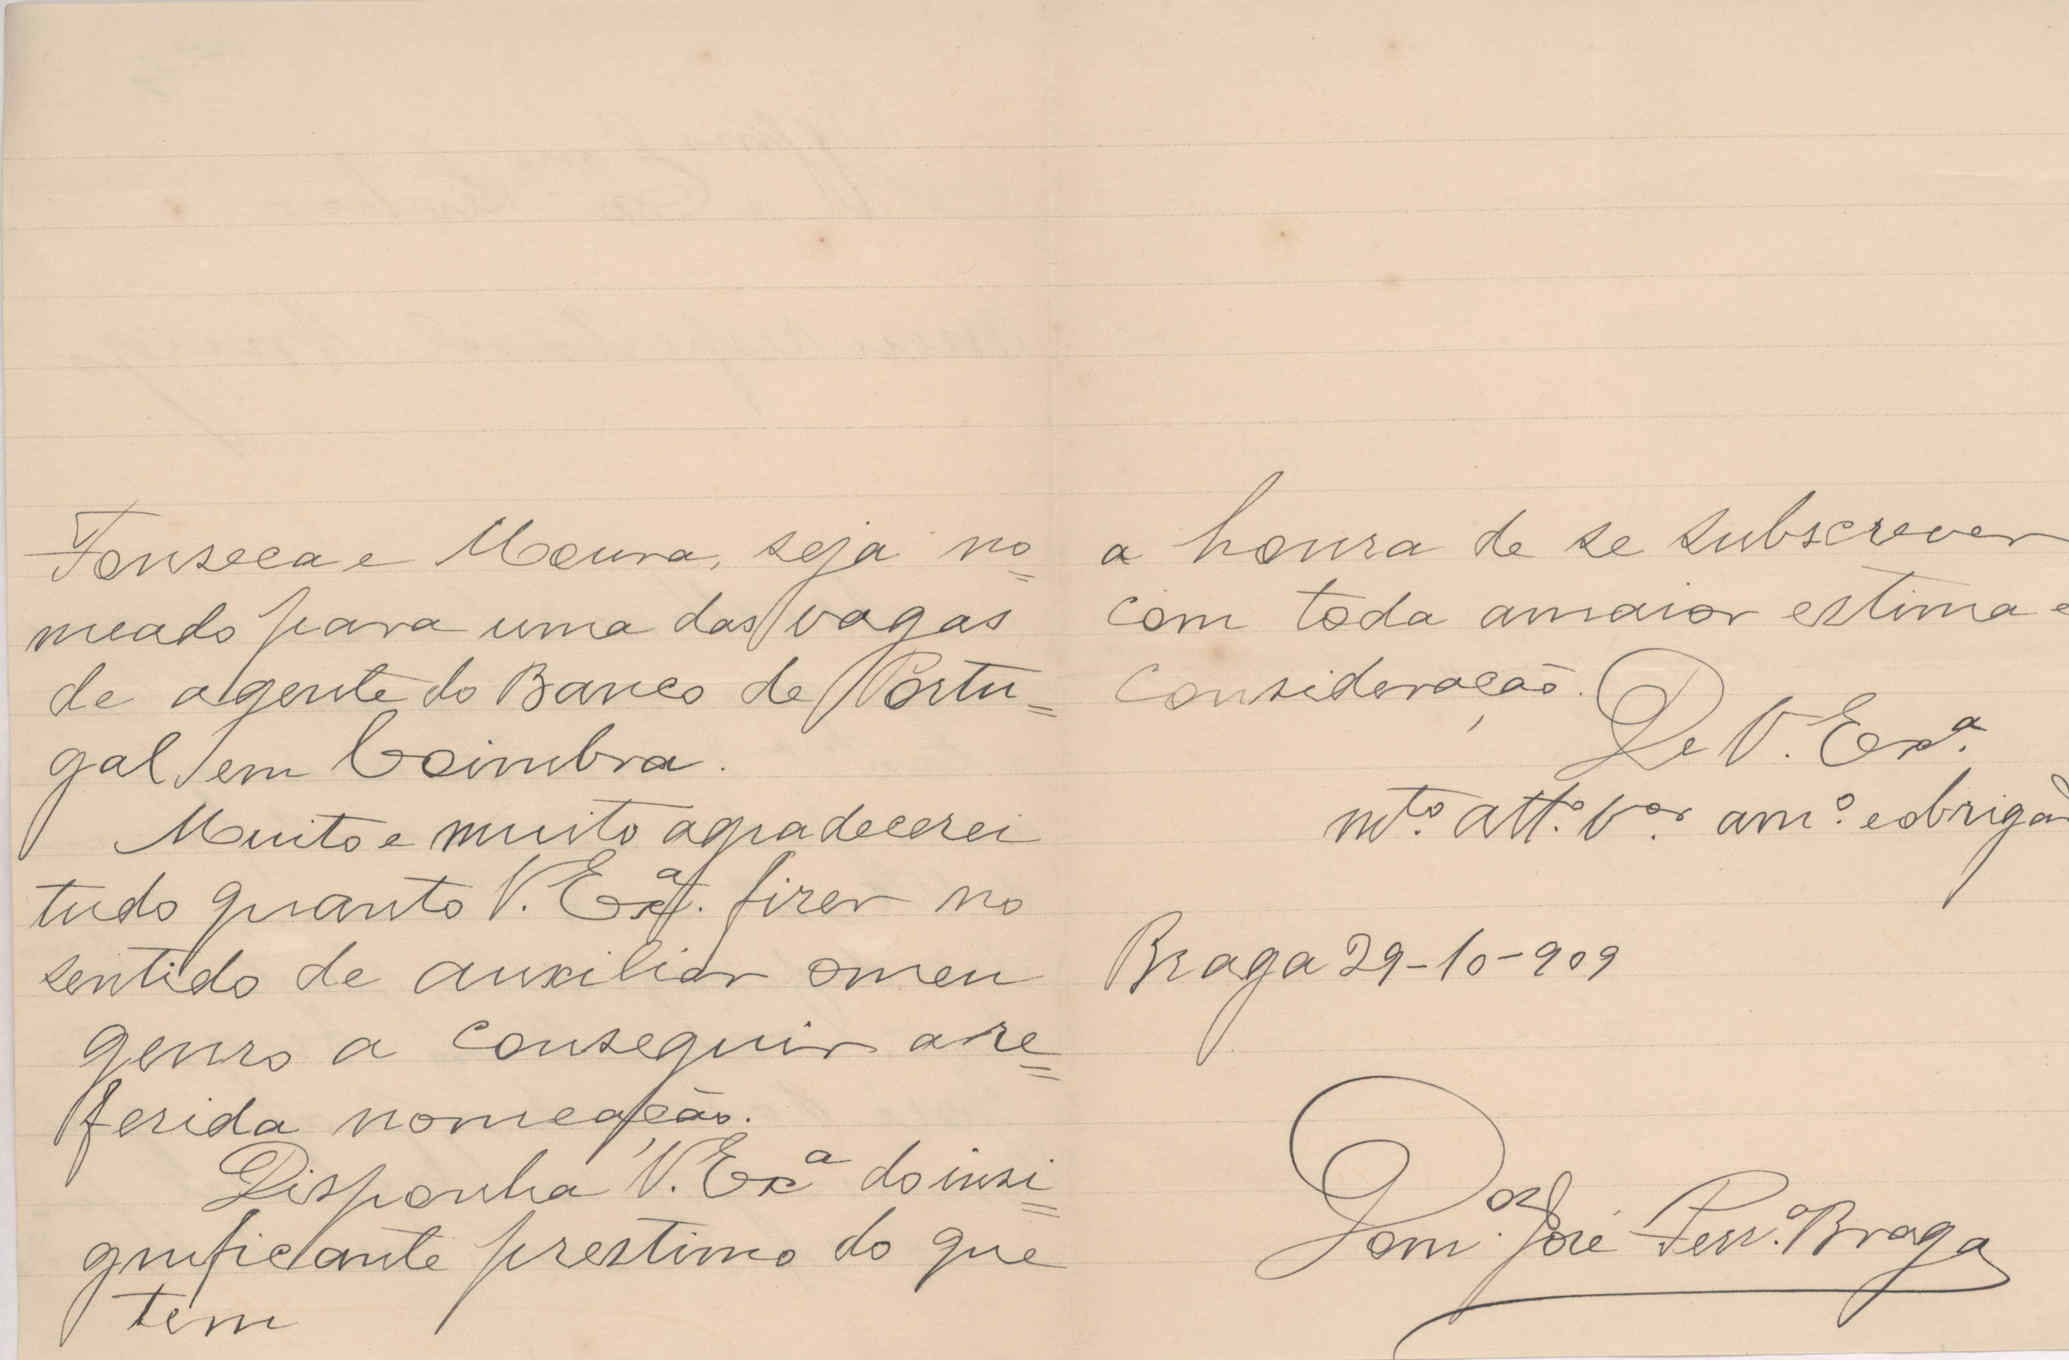 Fonseca e Moura, seja no=
meado para uma das vagas
de agente do Banco de Portu=
gal em Coimbra.
Muito e muito agradecerei
tudo quanto V. Exª. fizer no
sentido de auxiliar o meu
genro a conseguir a re=
ferida nomeação.
Disponha V. Exª do insi=
gnificante prestimo do que
tem
a honra de se subscrever
com toda a maior estima e
consideração.
De V. Exª.
mtº. attº. Vºr. amº. e obrigad
Braga 29-10-909
Domºs. José Ferrª. Braga